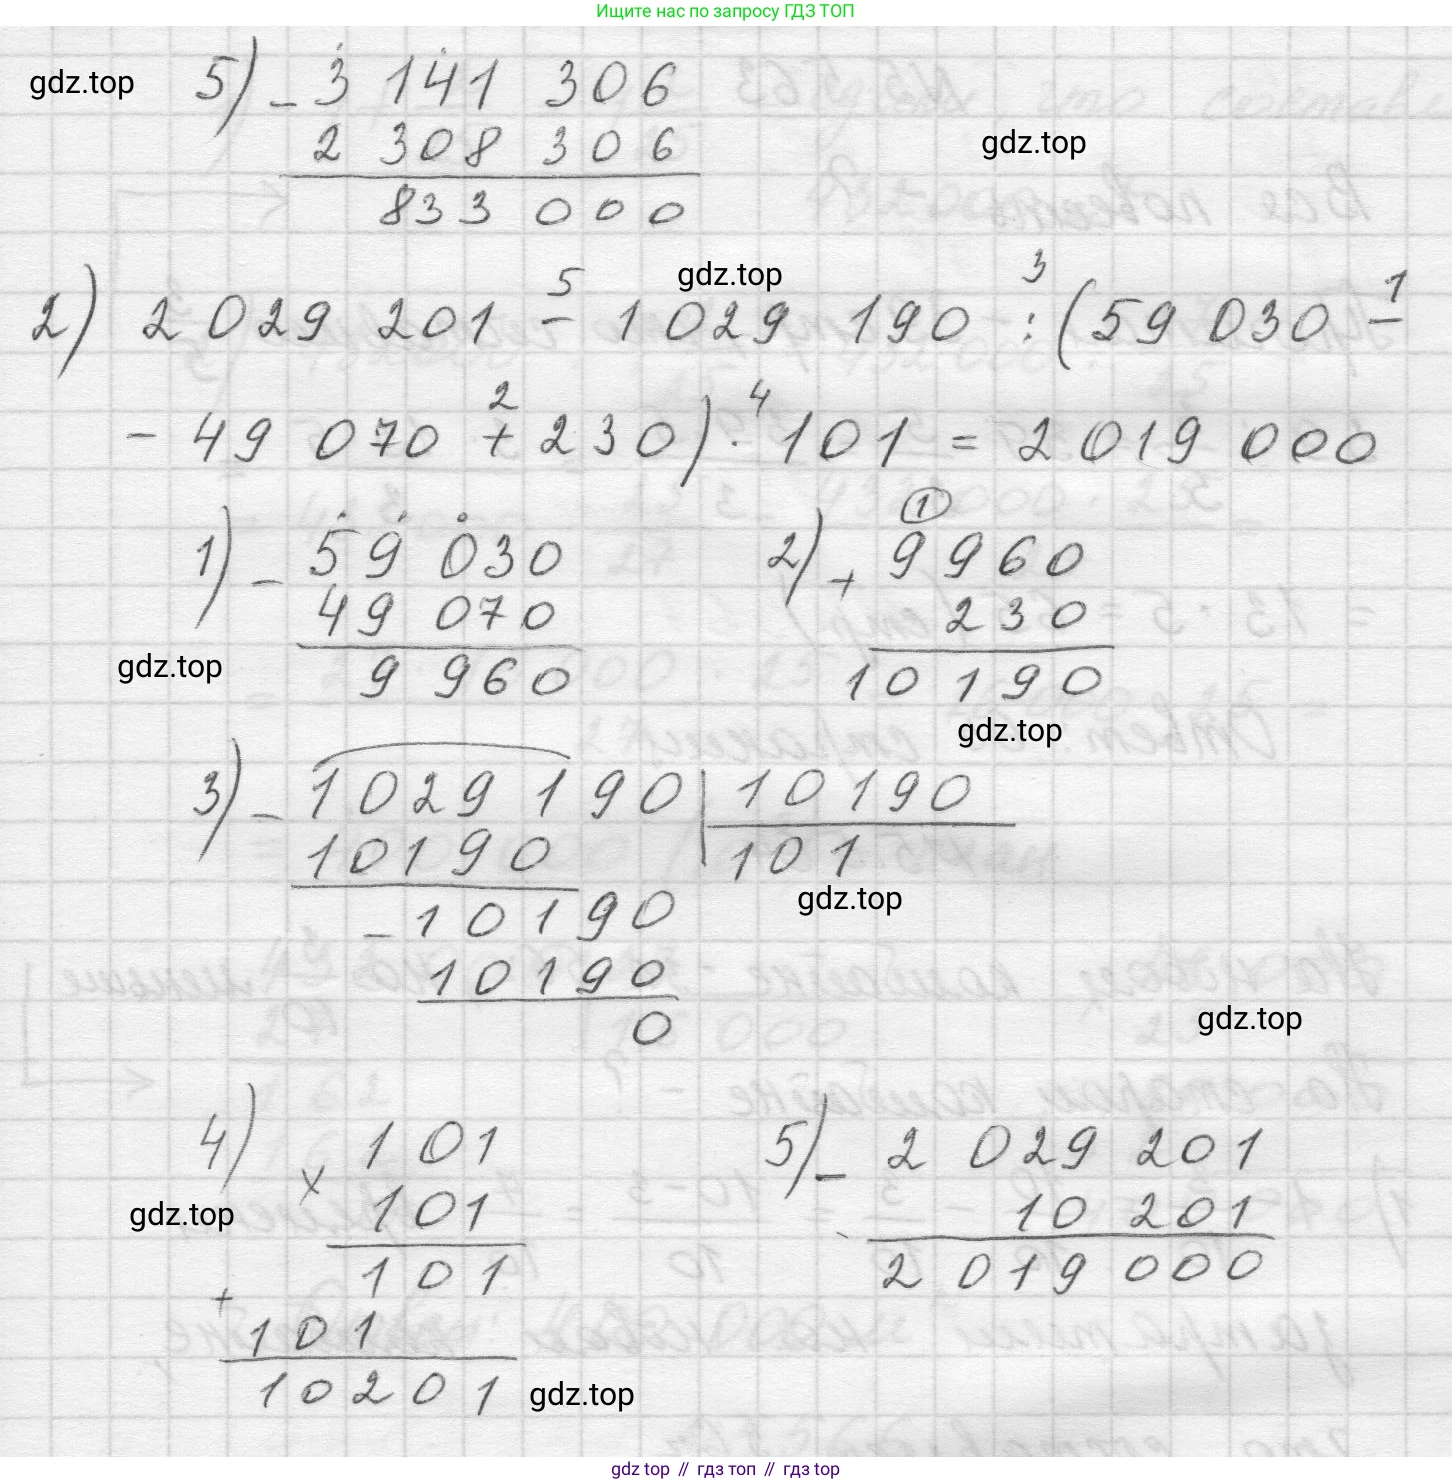 Ищите нас по запросу ГДЗ ТОП
gdz.top 5) - 3 141 306
2 308 306 gdz.top
833 000
gdz.top
5 3 1
2) 2 029 201 - 1 029 190 : (59 030 -
2 4
- 49 070 + 230) · 101 = 2 019 000
1) - 59 030 2) + 9 960
49 070 230
gdz.top 9 960 10 190
gdz.top
3) - 1 029 190 | 10 190
10190 101
gdz.top
- 10190
10190
0
gdz.top
4) × 101 5) - 2 029 201
gdz.top 101 10 201
101 2 019 000
+ 101
10201 gdz.top
gdz top // гдз топ // гдз top